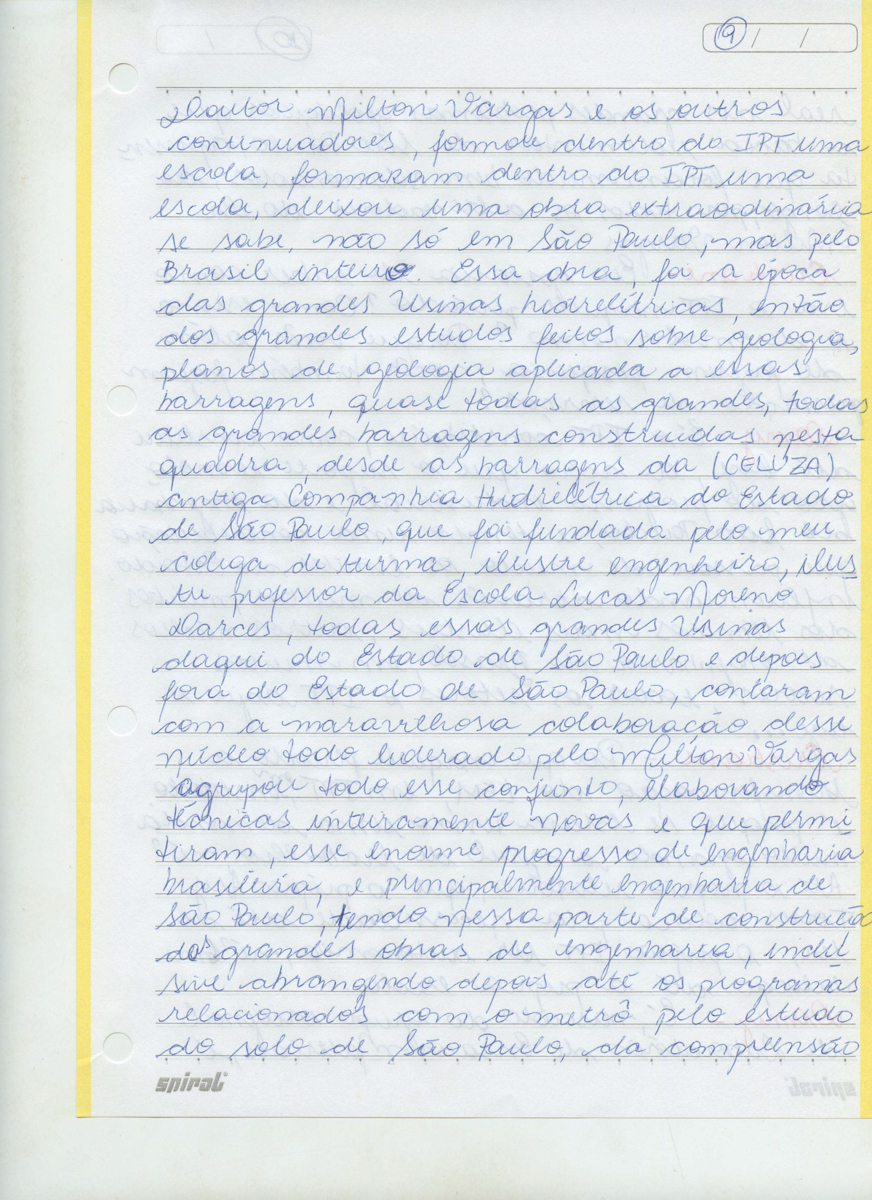 9 / /
Doutor Milton Vargas e os outros
continuadores, formou dentro do IPT uma
escola, formaram dentro do IPT uma
escola, deixou uma obra extraordinária
se sabe, não só em São Paulo, mas pelo
Brasil inteiro. Essa obra, foi a época
das grandes Usinas hidrelítricas, então
dos grandes estudos feitos sobre geologia,
planos de geologia aplicada a essas
barragens, quase todas as grandes, todas
as grandes barragens construidas nesta
quadra, desde as barragens da (CELUZA)
antiga Companhia Hidrelétrica do Estado
de São Paulo, que foi fundada pelo meu
colega de turma, ilustre engenheiro, ilus
tre professor da Escola Lucas Moreno
Darces, todas essas grandes Usinas
daqui do Estado de São Paulo e depois
fora do Estado de São Paulo, contaram
com a maravilhosa colaboração, desse
núcleo todo liderado pelo Milton Vargas
agrupou todo esse conjunto, elaborando
técnicas inteiramente novas e que permi
tiram, esse enorme progresso de engenharia
brasileira, e principalmente engenharia de
São Paulo, tendo nessa parte de construção
dos grandes obras de engenharia, inclu
sive abrangendo depois até os programas
relacionados com o metrô pelo estudo
do solo de São Paulo, da compreensão
spiral